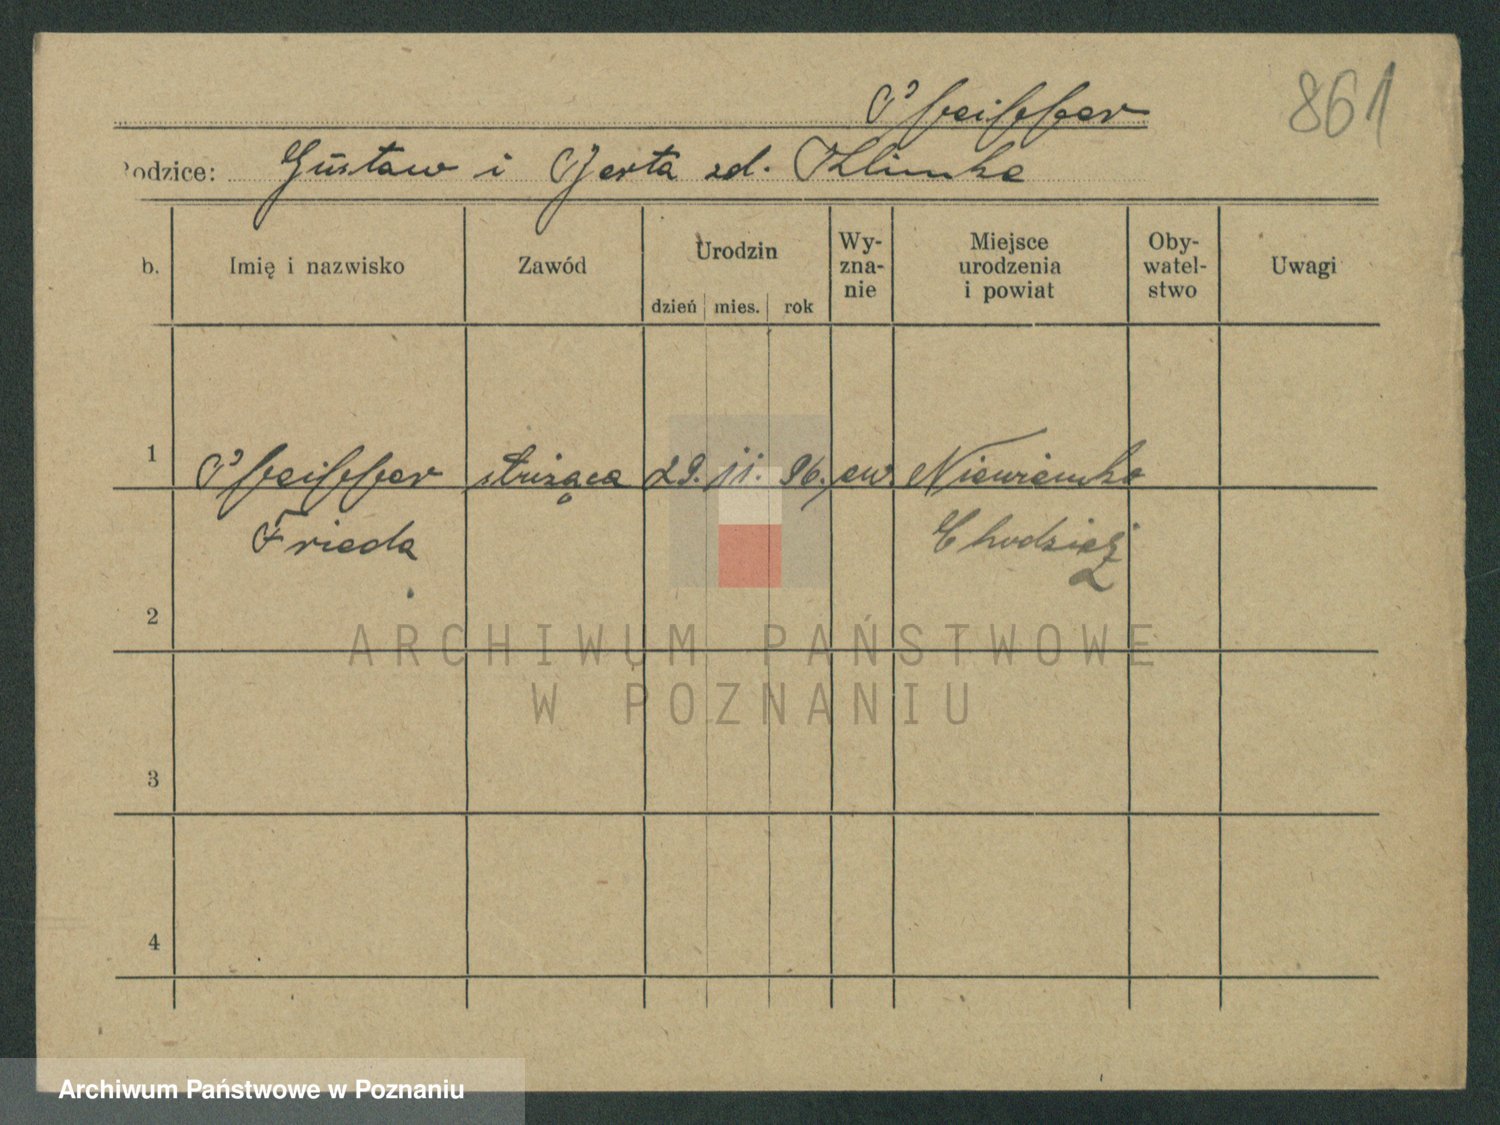 Pfeiffer
861
Rodzice: Gustaw i Berta zd. Klimke
b.
Imię i nazwisko
Zawód
Urodzin
dzień mies. rok
Wy-
zna-
nie
Miejsce
urodzenia
i powiat
Oby-
watel-
stwo
Uwagi
1 Pfeiffer służąca 29. 11. 96. ew.
Frieda
Chodzież
2
3
4
ARCHIWUM PAŃSTWOWE
W POZNANIU
Archiwum Państwowe w Poznaniu